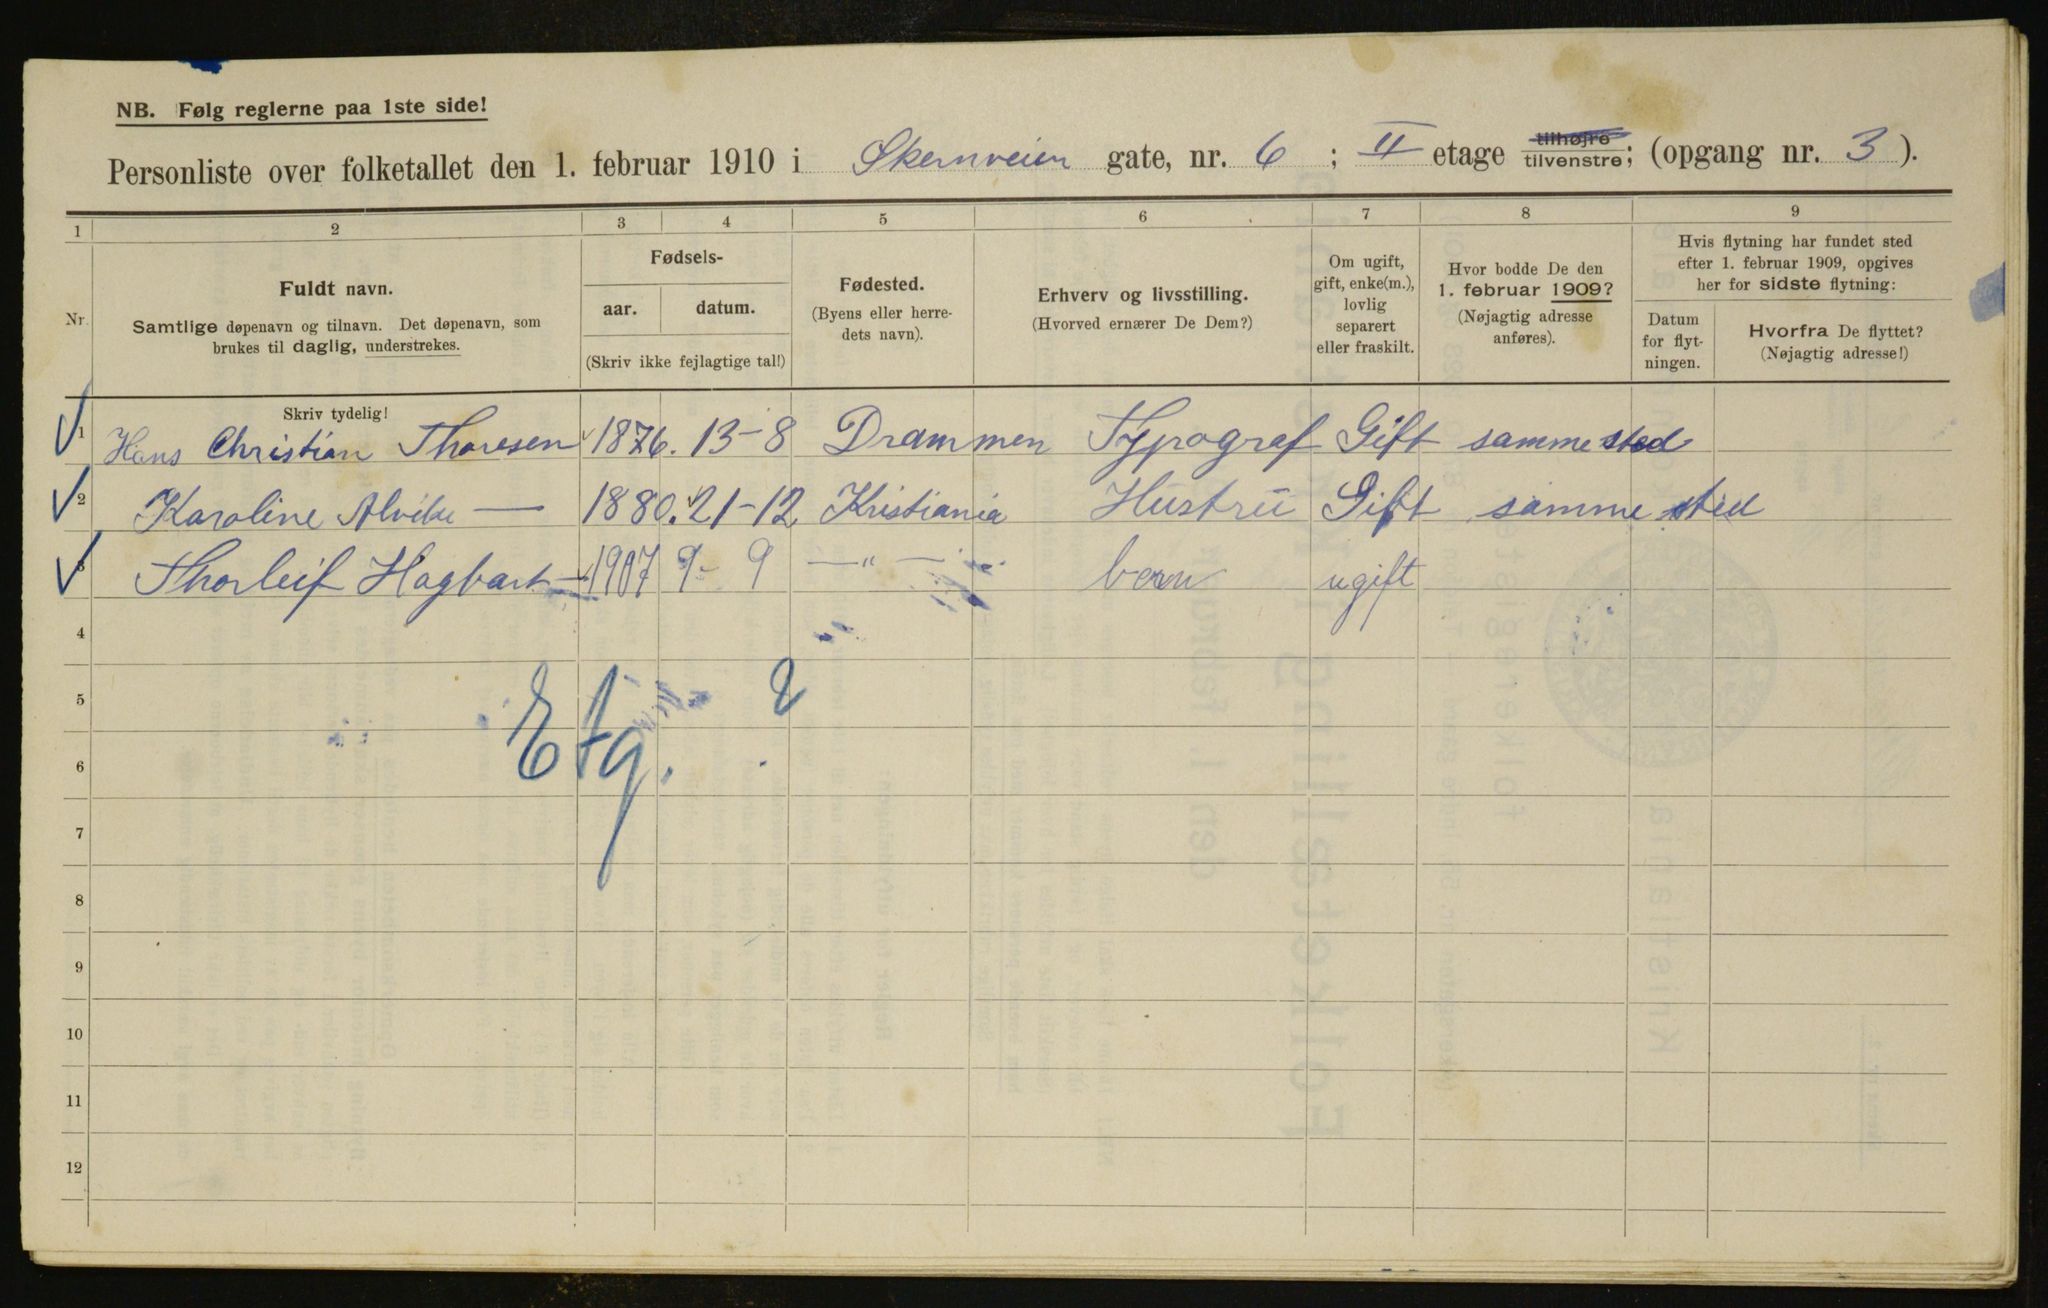 NB. Følg reglerne paa 1ste side!
Personliste over folketallet den 1. februar 1910 i Økernveien gate, nr. 6 ; II etage tilhøjre tilvenstre; (opgang nr. 3 ).
1 2 3 4 5 6 7 8 9
Nr.
Fuldt navn.
Samtlige døpenavn og tilnavn. Det døpenavn, som
brukes til daglig, understrekes.
Fødsels-
aar. datum.
(Skriv ikke fejlagtige tal!)
Fødested.
(Byens eller herre-
dets navn).
Erhverv og livsstilling.
(Hvorved ernærer De Dem?)
Om ugift,
gift, enke(m.),
lovlig
separert
eller fraskilt.
Hvor bodde De den
1. februar 1909?
(Nøjagtig adresse
anføres).
Hvis flytning har fundet sted
efter 1. februar 1909, opgives
her for sidste flytning:
Datum
for flyt-
ningen.
Hvorfra De flyttet?
(Nøjagtig adresse!)
Skriv tydelig!
1 Hans Christian Thoresen 1876. 13-8 Drammen Typograf Gift samme sted
2 Karoline Alvilde — 1880. 21-12 Kristiania Hustru Gift samme sted
3 Thorleif Hagbart — 1907 9- 9 —„— barn ugift
4
5
Etg. 2
6
7
8
9
10
11
12